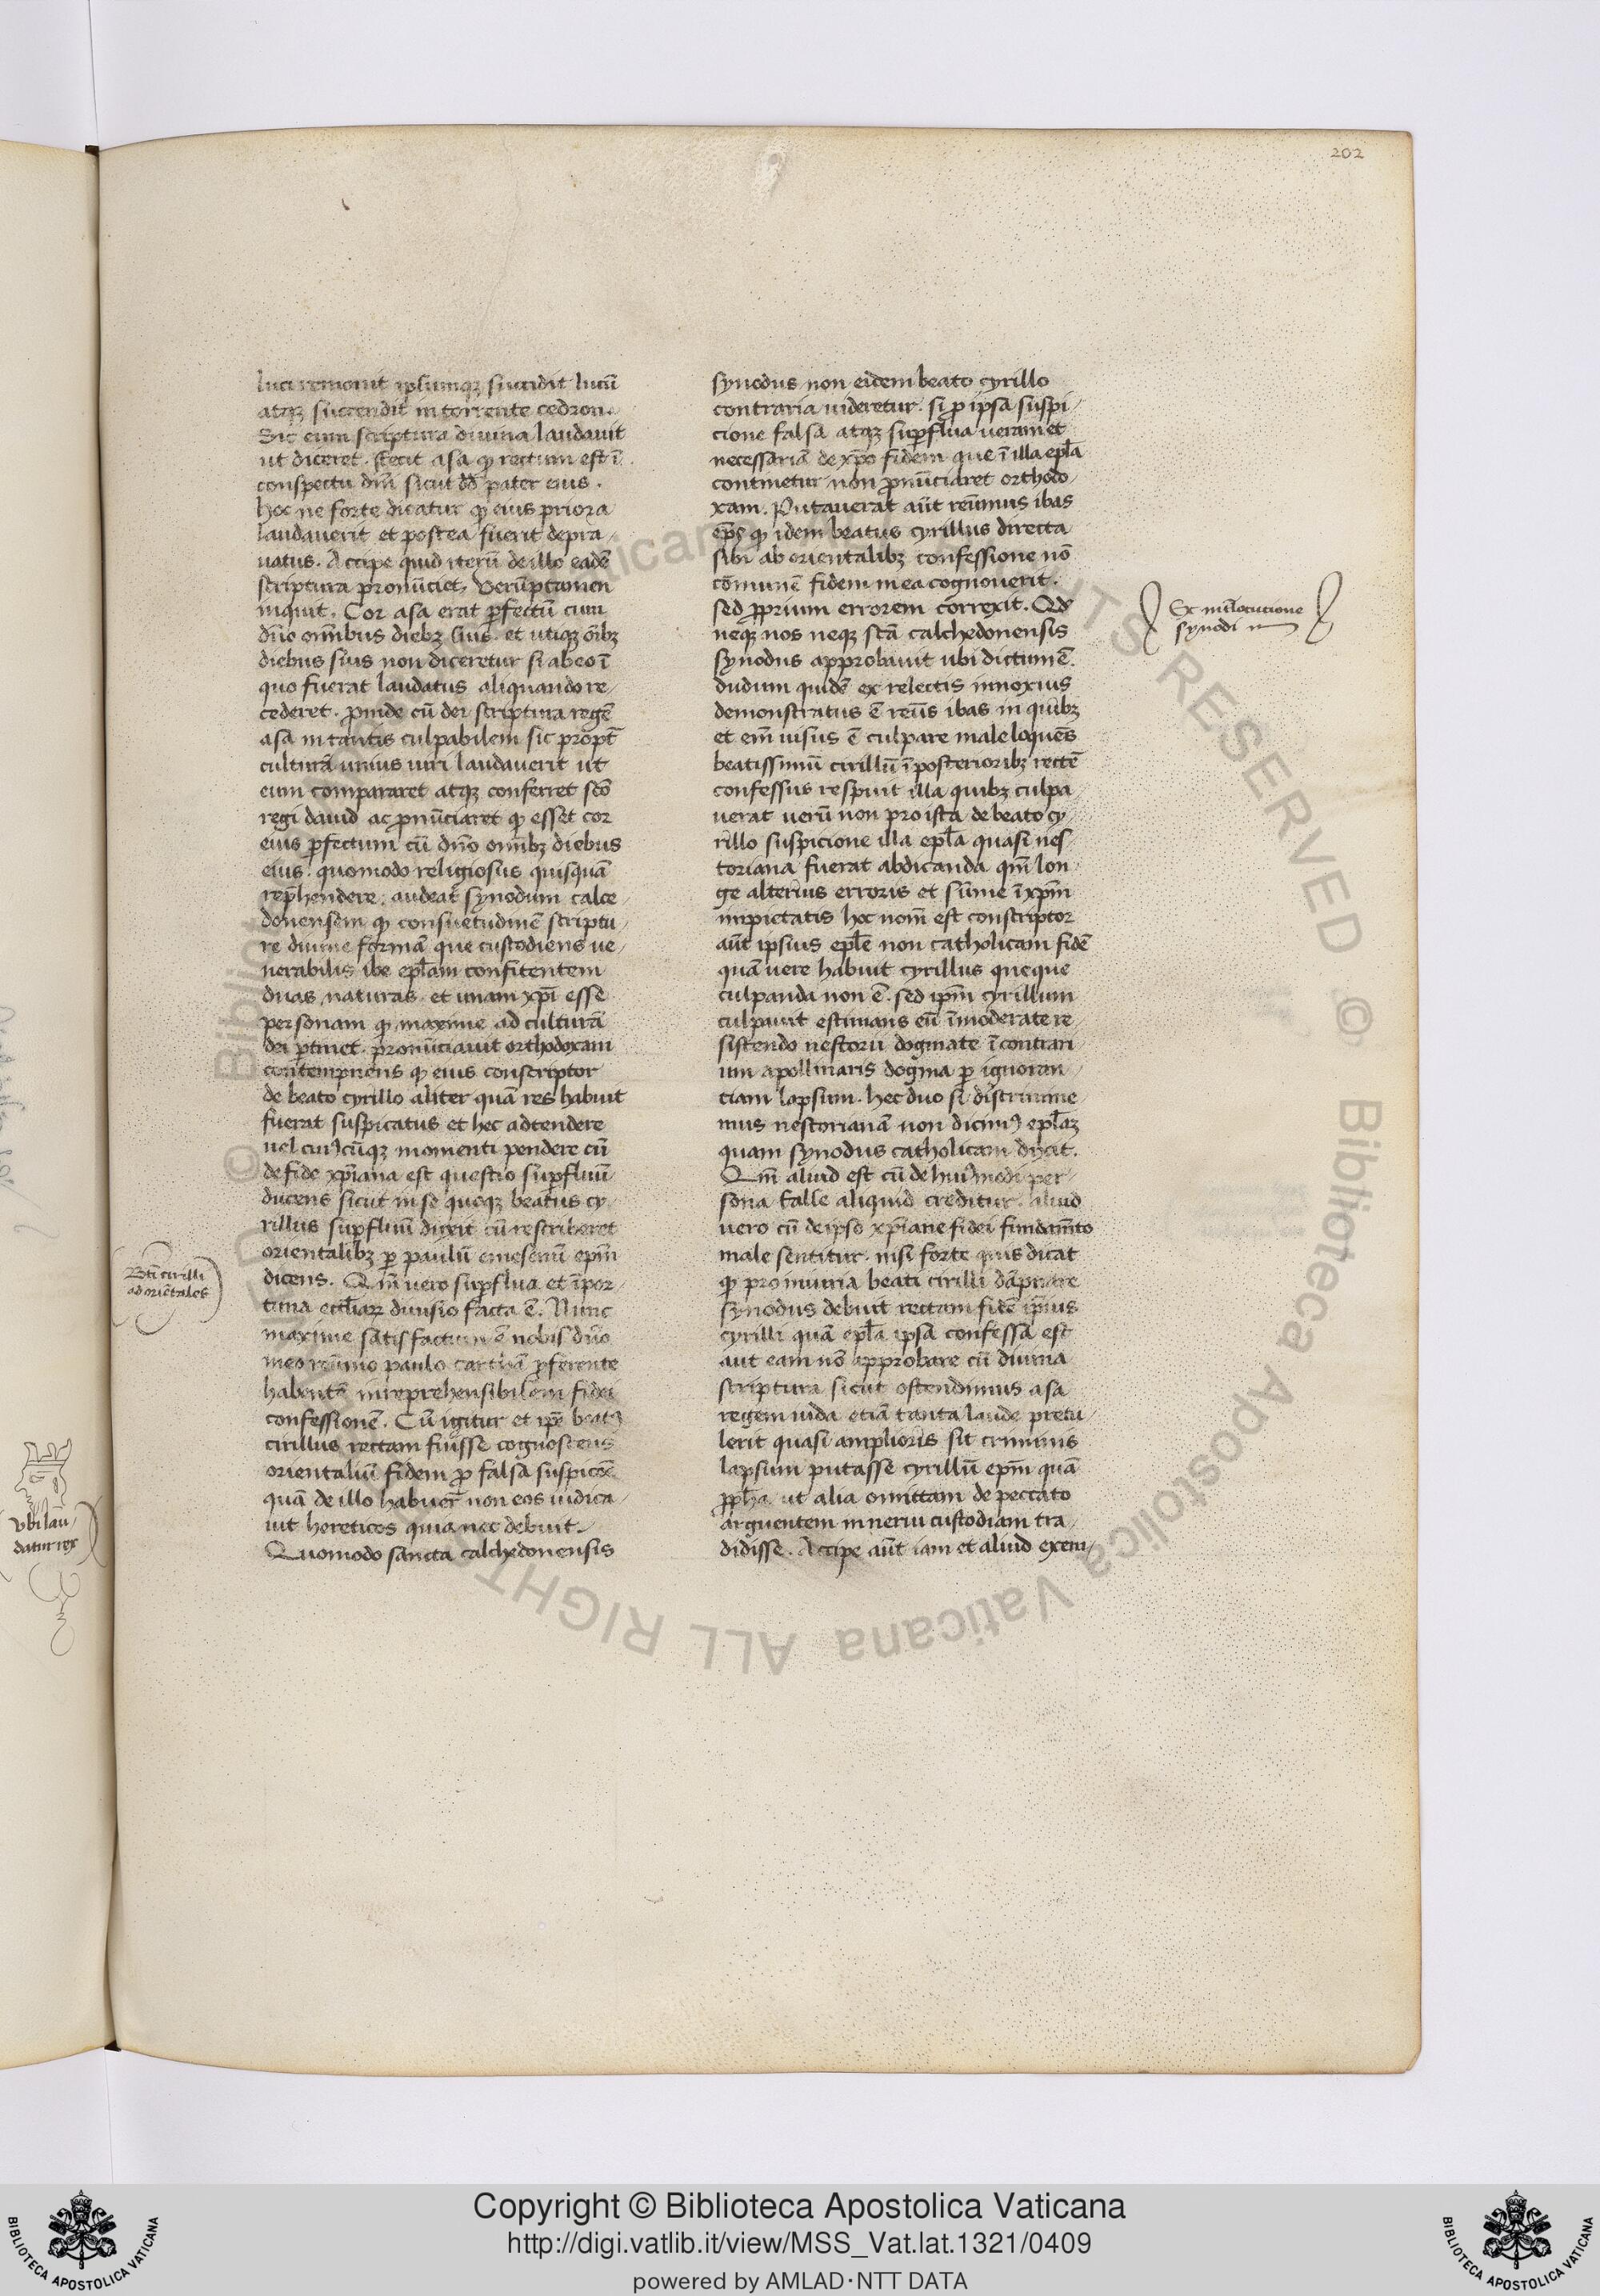 202
luci remouit ipsumqꝫ succidit lucū
atqꝫ succendit in torrente cedron.
Sic eum scriptura diuina laudauit
ut diceret. fecit asa qꝫ rectum est ī
conspectu dn̄i sicut dd̄ pater eius.
hoc ne forte dicatur qꝫ eius priora
laudauerit et postea fuerit depra/
uatus. Accipe quid iterū de illo eadē
scriptura pronūciet. Verūptamen
inquit. Cor asa erat ꝑfectū cum
dn̄o omībus diebꝫ suis. et utiqꝫ oībꝫ
diebus suis non diceretur si ab eo ī
quo fuerat laudatus aliquando re/
cederet. ꝓinde cū dei scriptura regē
asa in tantis culpabilem sic propt̄
culturā unius uiri laudauerit ut
eum compararet atqꝫ conferret sc̄o
regi dauid ac ꝓnūciaret qꝫ esset cor
eius ꝑfectum cū dn̄o omībꝫ diebus
eius. quomodo religiosus quisquā
rep̄hendere audeat synodum calce/
donensem qꝫ consuetudinē scriptu/
re diuine formā que custodiens ue/
nerabilis ibe epl̄am confitentem
duas naturas et unam xp̄i esse
personam qꝫ maxime ad culturā
dei ꝑtinet. pronūciauit orthodoxam
contempnens qꝫ eius conscriptor
de beato cyrillo aliter quā res habuit
fuerat suspicatus et hec adtendere
uel cuiꝰcūqꝫ momenti pendere cū
de fide xp̄iana est questio suꝑfluū
ducens sicut in se quoqꝫ beatus cy/
rillus suꝑfluū dixit cū rescriberet
orientalibꝫ ꝑ paulū emesenū ep̄m
dicens. Qm̄ uero suꝑflua et īpor/
tuna eccl̄iarꝫ diuisio facta ē. Nunc
maxime satisfactum ē nobis dn̄o
meo reuīmo paulo cartham ꝓferente
habentē inreprehensibilem fidei
confessionē. Cū igitur et ip̄e beatꝰ
cirillus rectam fuisse cognoscens
orientaliū fidem ꝓ falsa suspicōe
quā de illo habuer̄ non eos iudica/
uit hereticos quia nec debuit.
Quomodo sancta calchedonensis
Bt̄i cirilli
ad oriētales
synodus non eidem beato cyrillo
contraria uideretur. si ꝓ ipsa suspi/
cione falsa atqꝫ suꝑflua ueram et
necessariā de xp̄o fidem que ī illa epl̄a
continetur non ꝓnūciaret orthodo/
xam. Putauerat aūt reuīmus ibas
ep̄s qꝫ idem beatus cyrillus directa
sibi ab orientalibꝫ confessione nō
cōmunē fidem in ea cognouerit.
sed ꝓprium errorem correxit. Qd̄
neqꝫ nos neqꝫ sc̄a calchedonensis
synodus approbauit ubi dictum ē.
dudum quidē ex relectis innoxius
demonstratus ē reuīs ibas in quibꝫ
et em̄ uisus ē culpare male loquens
beatissimū cirillū ī posterioribꝫ recte
confessus respuit illa quibꝫ culpa/
uerat uerū non pro ista de beato cy/
rillo suspicione illa epl̄a quasi nes/
toriana fuerat abdicanda qm̄ lon/
ge alterius erroris et sūme ī xp̄m
impietatis hoc nom̄ est conscriptor
aūt ipsius epl̄e non catholicam fidē
quā uere habuit cyrillus queque
culpanda non ē. sed ip̄m cyrillum
culpauit estimans eū īmoderate re/
sistendo nestorii dogmate ī contrari
um apollinaris dogma ꝑ ignoran/
tiam lapsum. hec duo si discrimine/
mus nestorianā non dicimꝰ epl̄aꝫ
quam synodus catholicam dixit.
Qm̄ aliud est cū de huiꝰmodi per/
sona falle aliquid creditur. aliud
uero cū de ipso xp̄iane fidei fundam̄to
male sentitur. nisi forte quis dicat
qꝫ pro iniuria beati cirilli dāpnare
synodus debuit rectam fidē ip̄ius
cyrilli quā epl̄a ipsa confessa est
aut eam nō approbare cū diuina
scriptura sicut ostendimus asa
regem iuda etiā tanta laude pretu/
lerit quasi amplioris sit criminis
lapsum putasse cyrillū ep̄m quā
ꝓph̄a ut alia omittam de peccato
arguentem in neruī custodiam tra/
didisse. Accipe aūt iam et aliud exem/
synodi
vbi lau/
datur rex
Copyright © Biblioteca Apostolica Vaticana
http://digi.vatlib.it/view/MSS_Vat.lat.1321/0409
powered by AMLAD·NTT DATA
BIBLIOTECA APOSTOLICA VATICANA
BIBLIOTECA APOSTOLICA VATICANA